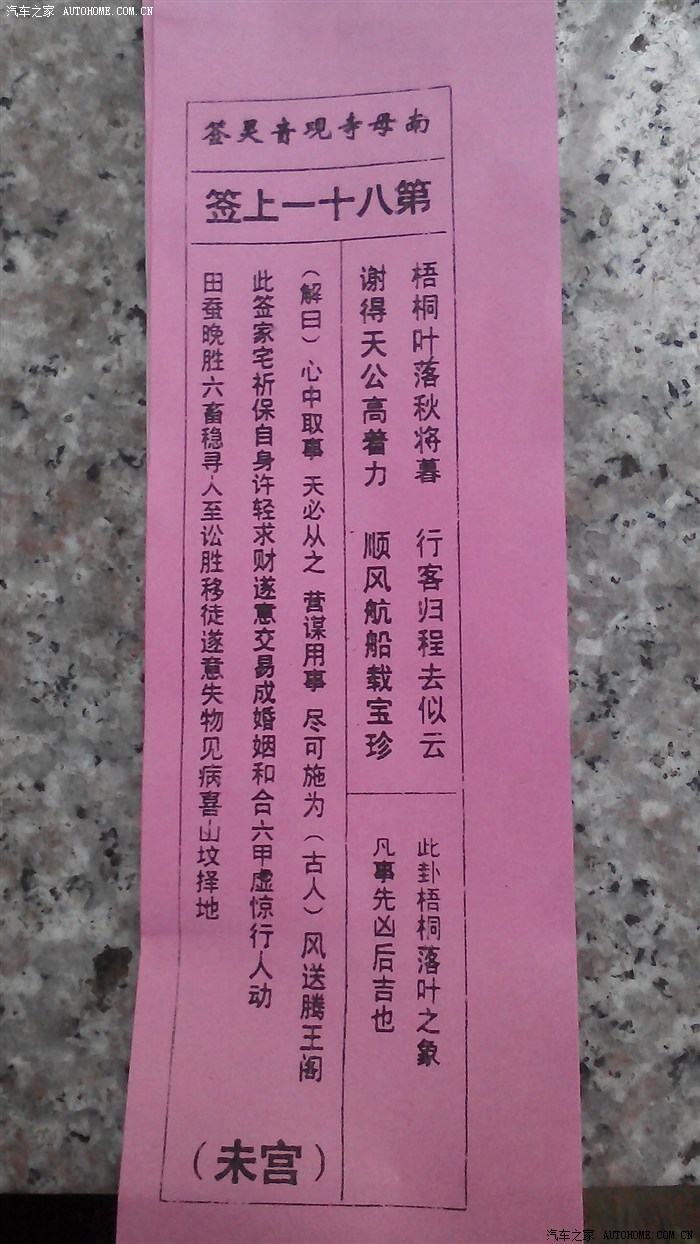 汽车之家 AUTOHOME.COM.CN
南母寺观音灵签
第八十一上签
梧桐叶落秋将暮 行客归程去似云
谢得天公高着力 顺风航船载宝珍
此卦梧桐落叶之象
凡事先凶后吉也
（解曰）心中取事 天必从之 营谋用事 尽可施为（古人）风送腾王阁
此签家宅祈保自身许轻求财遂意交易成婚姻和合六甲虚惊行人动
田蚕晚胜六畜稳寻人至讼胜移徒遂意失物见病喜山坟择地
（未宫）
汽车之家 AUTOHOME.COM.CN